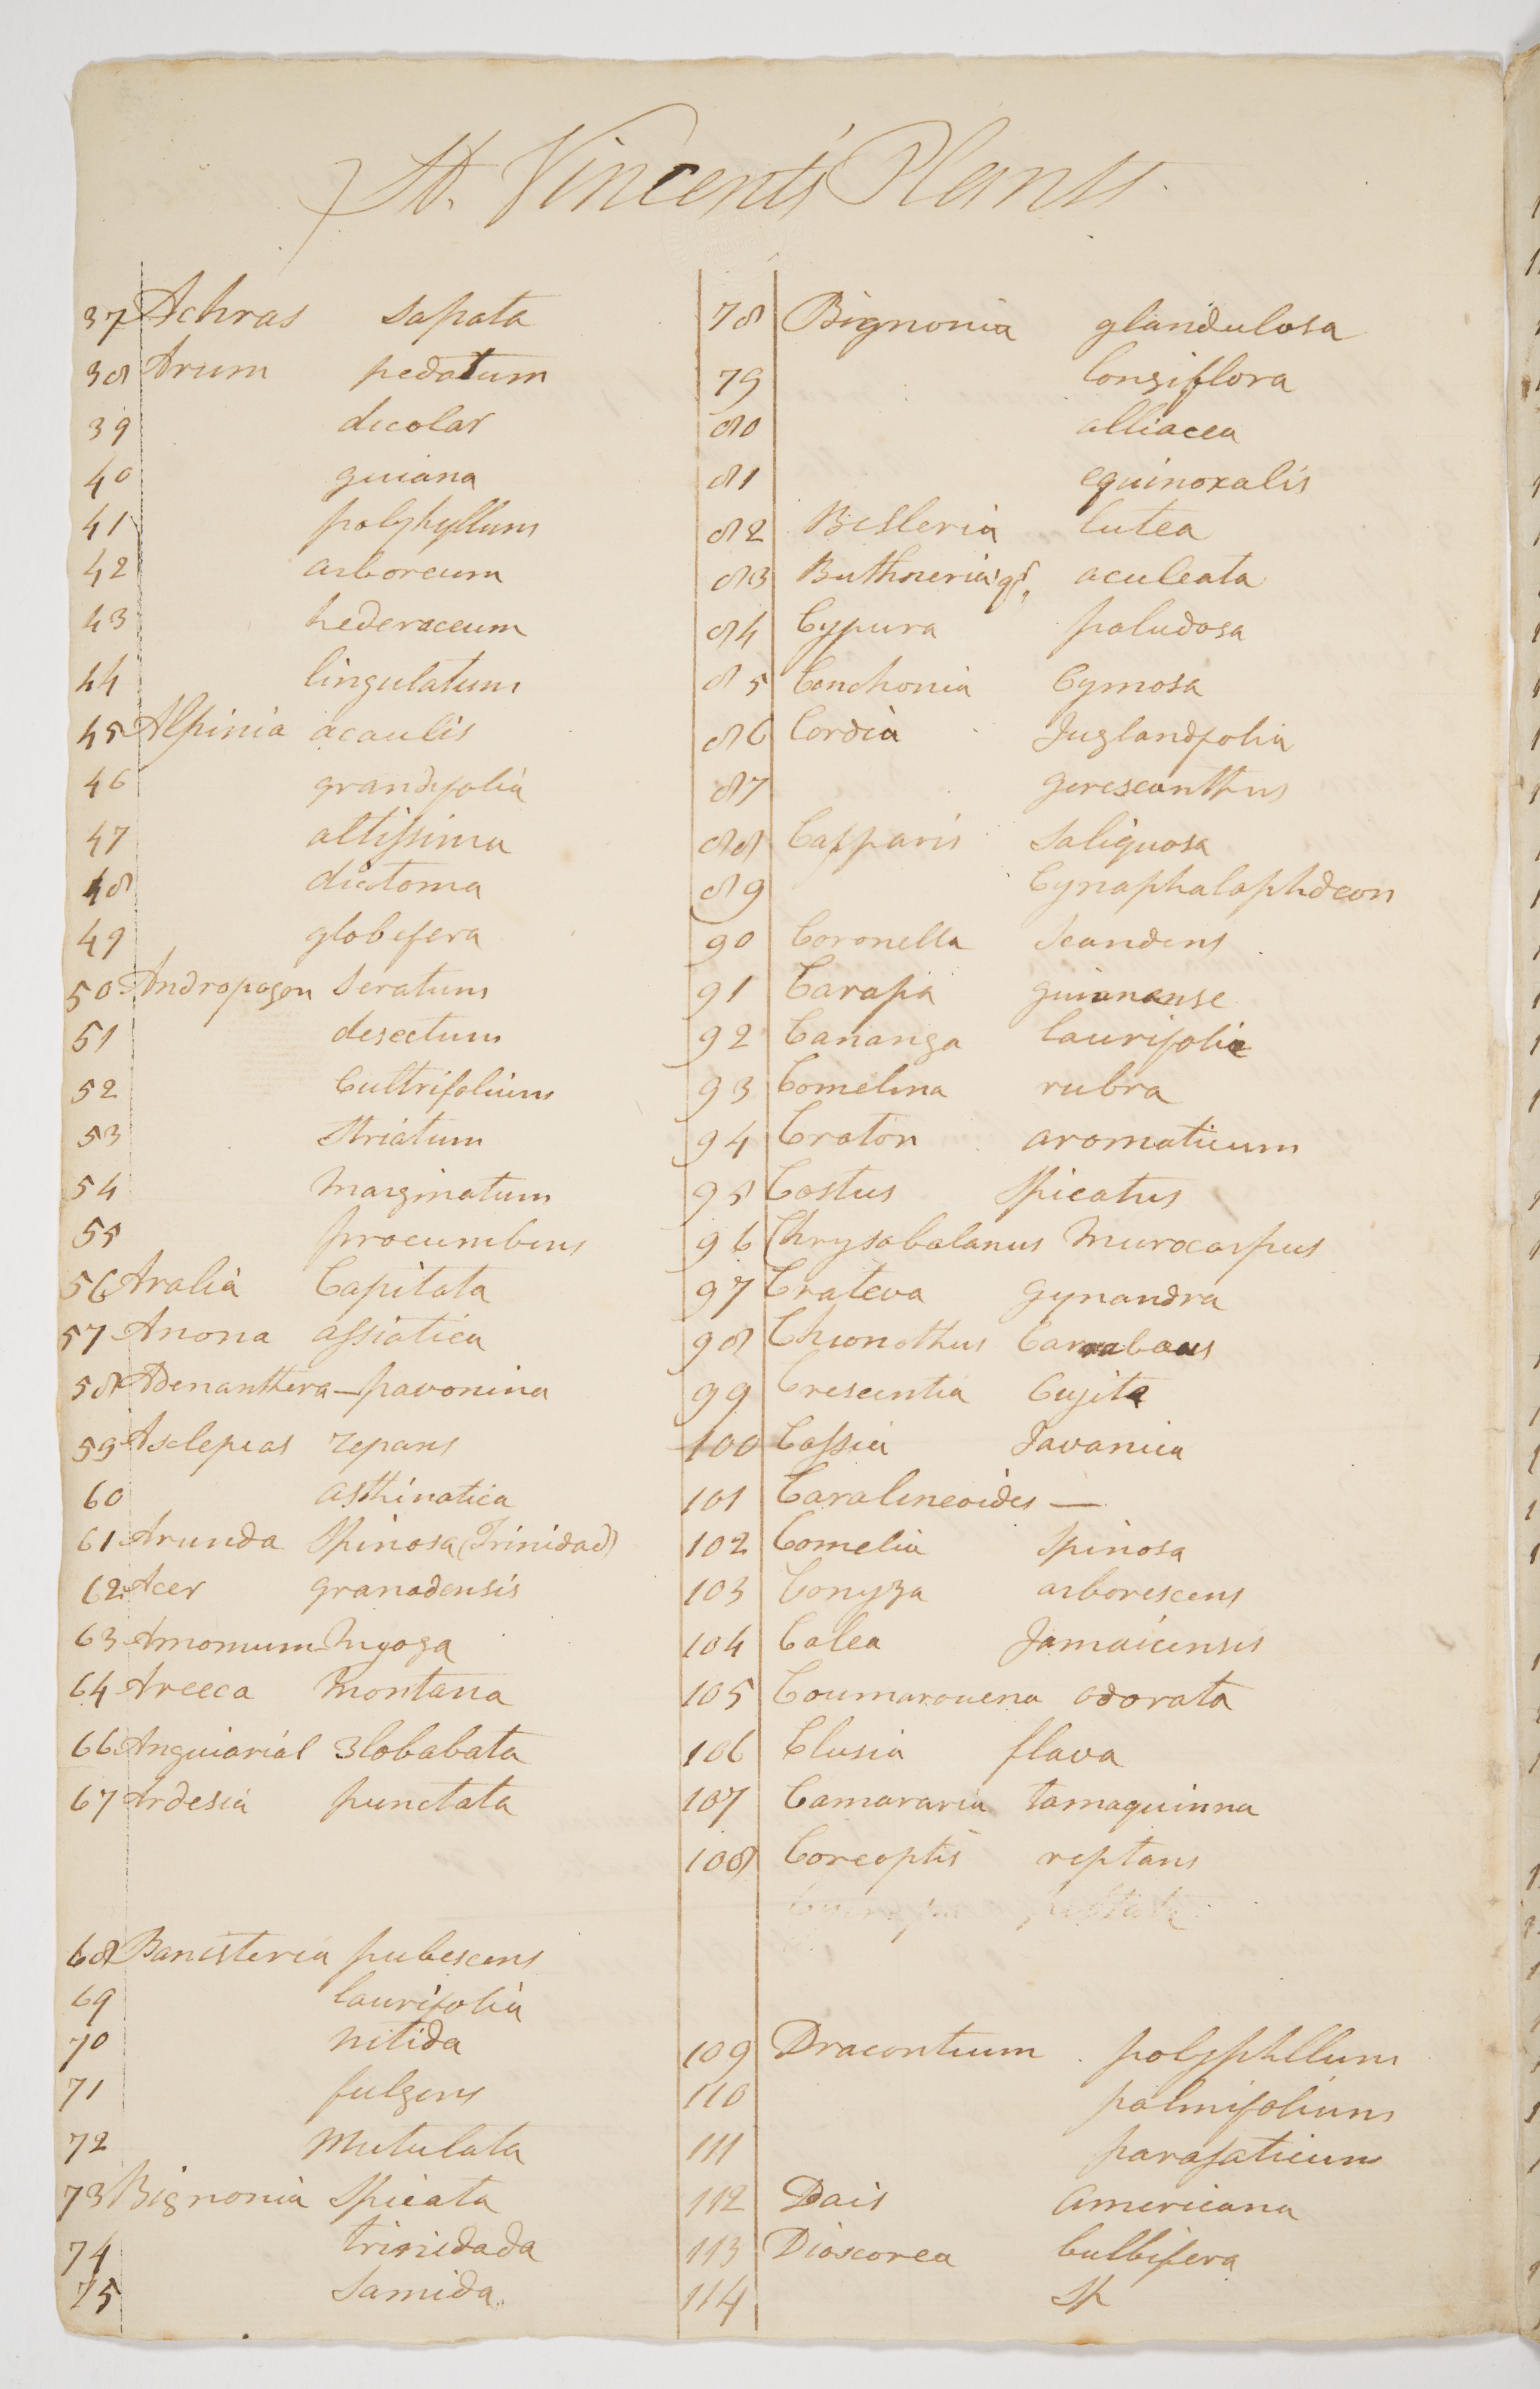 St. Vincents Plants
37 Achras Sapata
38 Arum pedatum
39 dicolar
40 guiana
41 polyhyllum
42 arboreum
43 hederaceum
44 lingulatum
45 Alpinia acaulis
46 grandifolia
47 altissima
48 dictoma
49 globifera
50 Andropogon Seratum
51 desectum
52 Cultrifolium
53 Striatum
54 Marginatum
55 procumbens
56 Aralia Capitata
57 Anona assiatica
58 Adenanthera - pavonina
59 Asclepias repans
60 asthinatica
61 Arunda Spinosa (Trinidad)
62 Acer granadensis
63 Amomum Myoga
64 Areeca Montana
66 3lobabata
67 Ardesia punctata
68 Banisteria pubescens
69 laurifolia
70 nitida
71 fulgens
72 Mutulata
73 Bignonia Spicata
74 trinidada
75 Samida
78 Bignonia glandulosa
79 longiflora
80 alliacea
81 equinoxalis
82 Besleria lutea
83 Buthneria aculeata
84 Cypura paludosa
85 Conchonia Cymosa
86 Cordia Juglandfolia
87 gerescanthus
88 Capparis Saliquosa
89
90 Coronella Scandens
91 Carapa guianense
92 Cananga laurifolia
93 Comelina rubra
94 Craton aromaticum
95 Costus Spicatus
96 Chrysobalanus Murocarpus
97 Crateva gynandra
98 Chionothus
99 Crescentia Cujite
100 Cassia Javanica
101 Caralineoides —
102 Comelia Spinosa
103 Conyza arborescens
104 Calea Jamaicensis
105 Coumarouena odorata
106 Clusia flava
107 Camararia tamaquinna
108 Coreoptis reptans
109 Dracontium polyphllum
110 palmifolium
111 parasaticum
112 Dais Americana
113 Dioscorea bulbifera
114 Sp